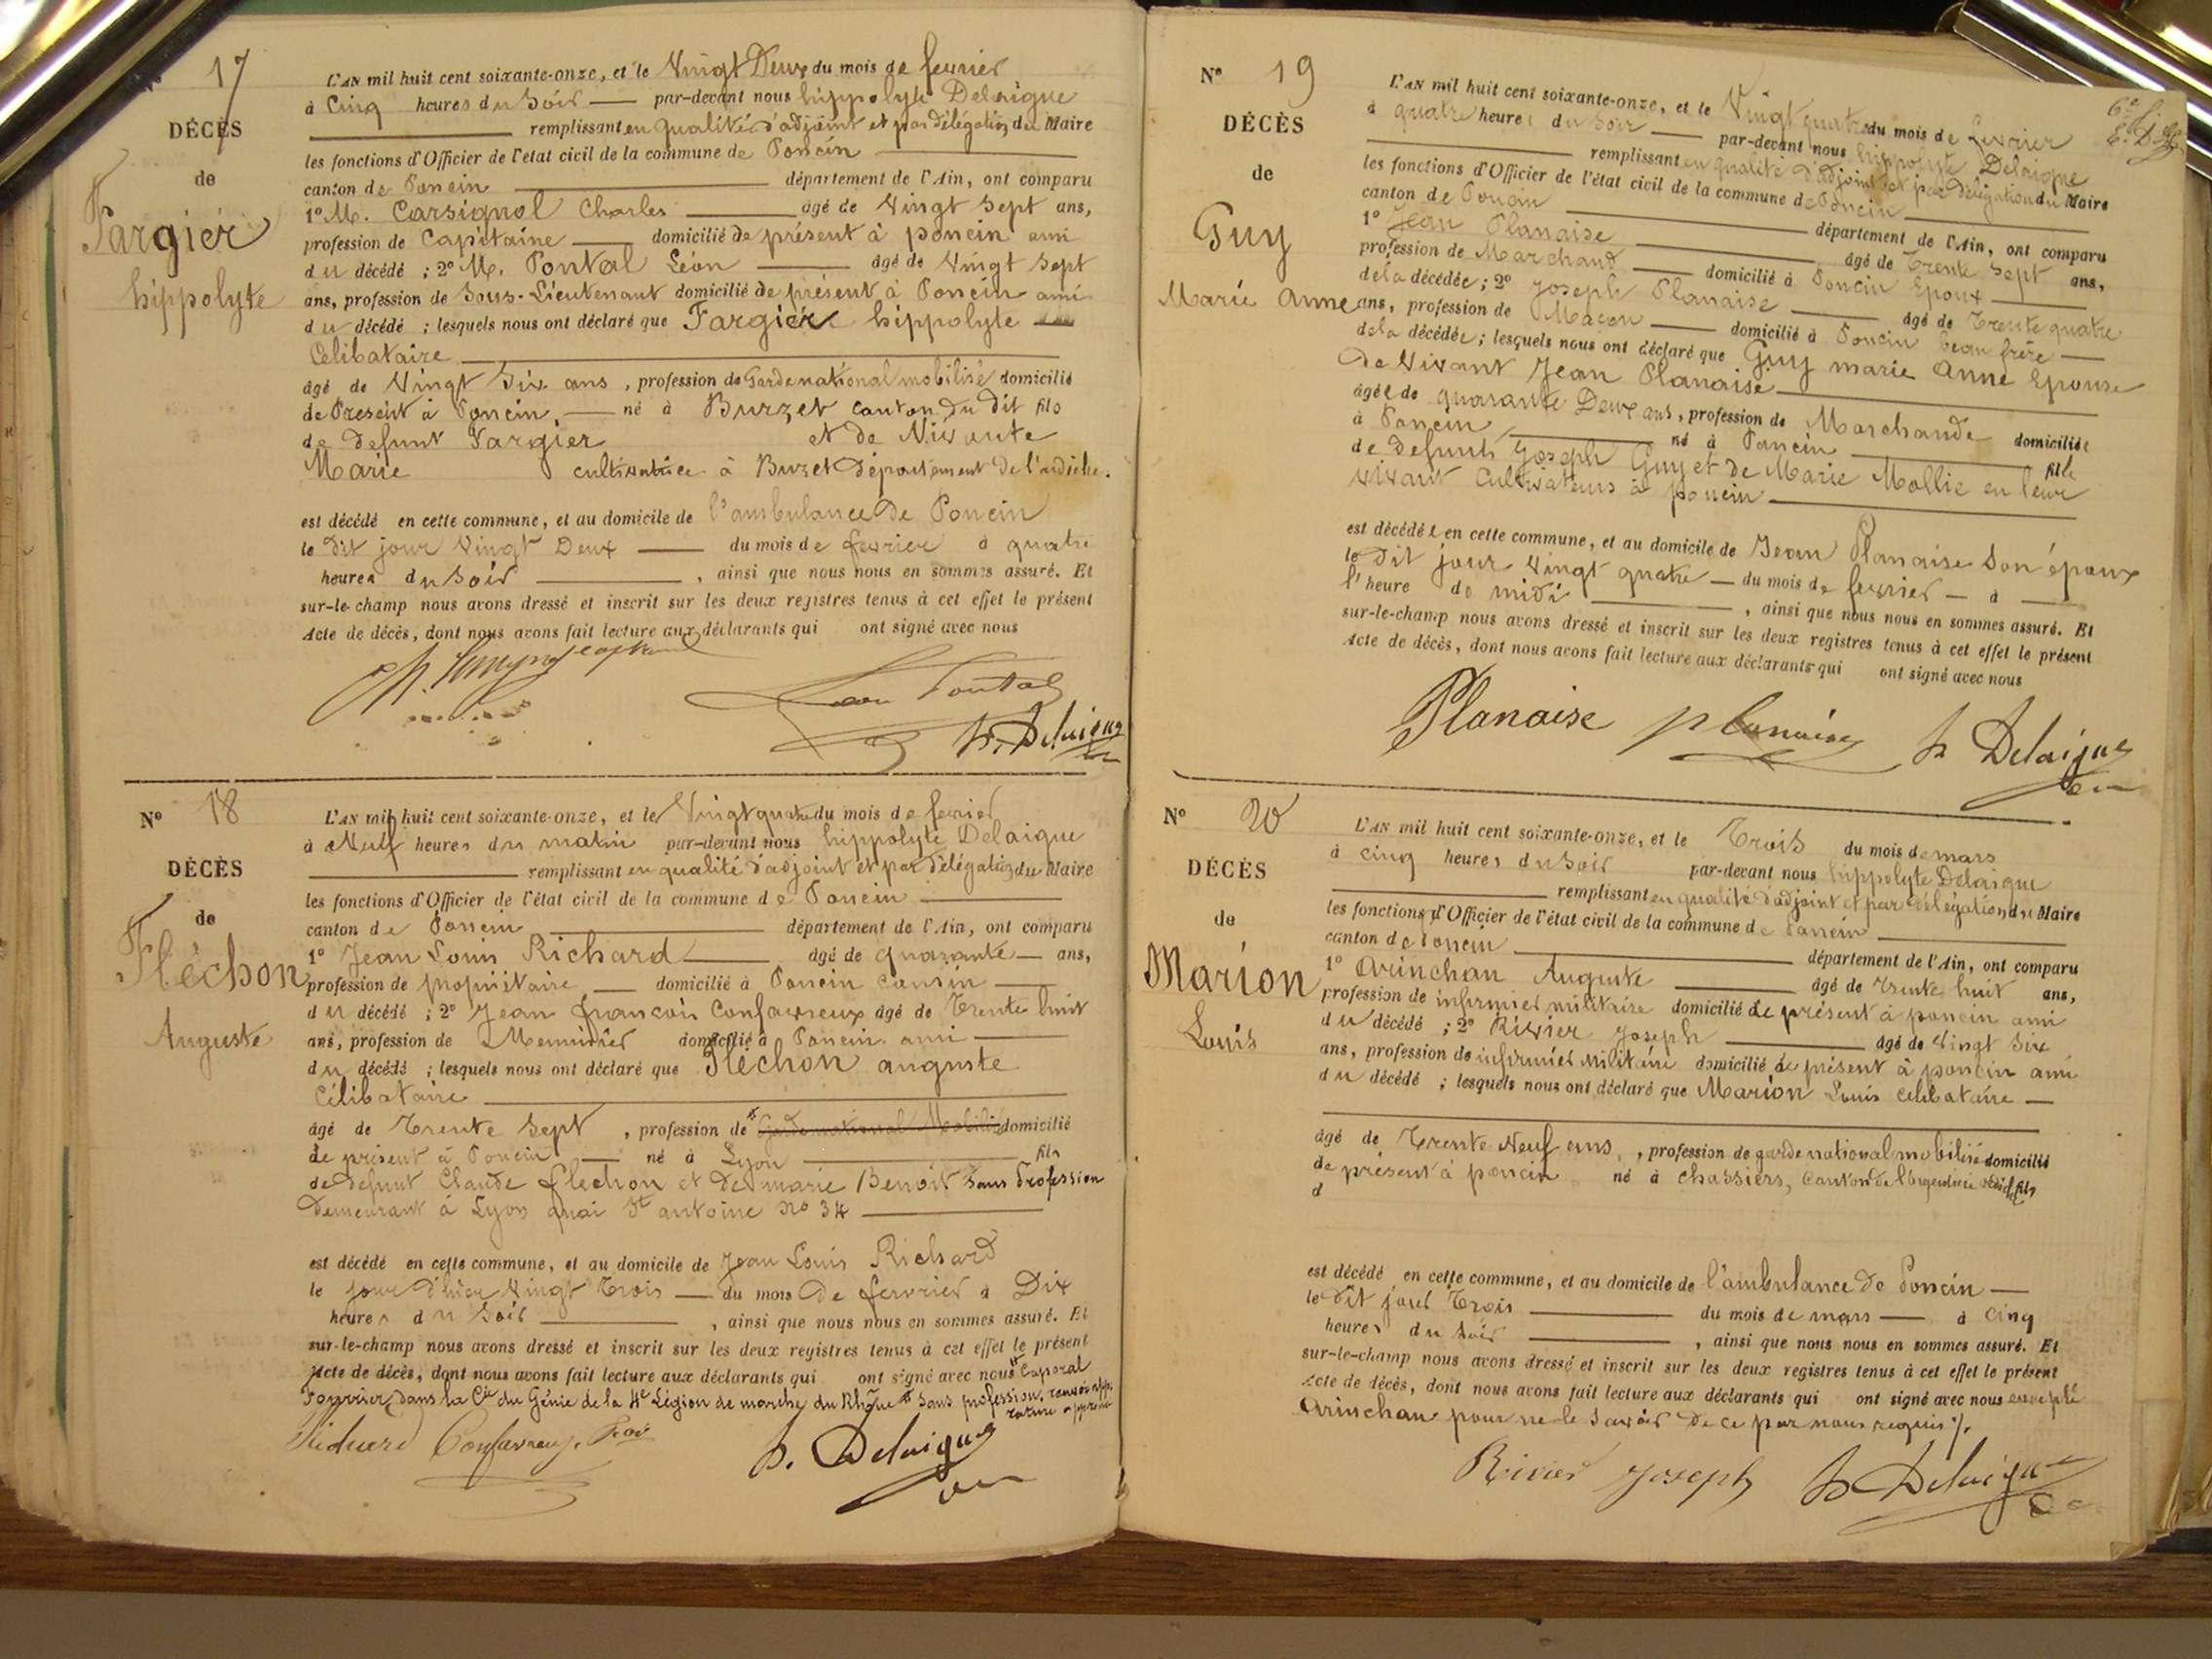 17
DÉCÈS
de
Fargier
hippolyte
L'AN mil huit cent soixante-onze, et le Vingt Deux du mois de fevrier
à Cinq heures du Soir — par-devant nous hippolyte Delaigue
remplissant en qualité d'adjoint et par délégation du Maire
les fonctions d'Officier de l'état civil de la commune de Poncin
canton de Poncin département de l'Ain, ont comparu
1° M. Carsignol Charles âgé de Vingt Sept ans,
profession de Capitaine domicilié de présent à poncin ami
du décédé ; 2° M. Pontal Léon âgé de Vingt Sept
ans, profession de Sous-Lieutenant domicilié de présent à Poncin ami
du décédé ; lesquels nous ont déclaré que Fargier hippolyte
Célibataire
âgé de Vingt Six ans, profession de Garde national mobilisé domicilié
de Present à Poncin, né à Burzet canton du dit fils
de defunt Fargier et de Vivante
Marie cultivatrice à Burzet Département de l'ardèche.
est décédé en cette commune, et au domicile de l'ambulance De Poncin
le Dit jour Vingt Deux du mois de fevrier à quatre
heures du Soir , ainsi que nous nous en sommes assuré. Et
sur-le-champ nous avons dressé et inscrit sur les deux registres tenus à cet effet le présent
Acte de décès, dont nous avons fait lecture aux déclarants qui ont signé avec nous
Léon Pontal
h. Delaigue
N° 18
DÉCÈS
de
Fléchon
Auguste
L'AN mil huit cent soixante-onze, et le Vingt quatre du mois de fevrier
à Neuf heures du matin par-devant nous hippolyte Delaigue
remplissant en qualité d'adjoint et par délégation du Maire
les fonctions d'Officier de l'état civil de la commune de Poncin
canton de Poncin département de l'Ain, ont comparu
1° Jean Louis Richard âgé de quarante — ans,
profession de propriétaire domicilié à Poncin Cousin
du décédé ; 2° Jean françois Confavreux âgé de Trente huit
ans, profession de Menuisier domicilié à Poncin ami
du décédé ; lesquels nous ont déclaré que Fléchon auguste
Célibataire
âgé de Trente Sept , profession de Garde national Mobilisé domicilié
de présent à Poncin né à Lyon fils
de defunt Claude flechon et de marie Benoit Sans Profession
Demeurant à Lyon quai St antoine no 34
est décédé en cette commune, et au domicile de Jean Louis Richard
le jour d'hier Vingt Trois du mois De fevrier à Dix
heures du Soir , ainsi que nous nous en sommes assuré. Et
sur-le-champ nous avons dressé et inscrit sur les deux registres tenus à cet effet le présent
Acte de décès, dont nous avons fait lecture aux déclarants qui ont signé avec nous Caporal
Fourrier dans la Cie du Génie de la 4e Légion de marche du Rhône Sans profession, renvoi
rature approuvé
Richard Confavreux
h. Delaigue
N° 19
DÉCÈS
de
Guy
Marie Anne
L'AN mil huit cent soixante-onze, et le Vingt quatre du mois de fevrier
à quatre heures du Soir par-devant nous hippolyte Delaigue
remplissant en qualité d'adjoint et par délégation du Maire
les fonctions d'Officier de l'état civil de la commune de Poncin
canton de Poncin département de l'Ain, ont comparu
1° Jean Planaise âgé de Trente Sept ans,
profession de Marchand domicilié à Poncin Epoux
de la décédée ; 2° Joseph Planaise âgé de Trente quatre
ans, profession de Maçon domicilié à Poncin beau frère
de la décédée ; lesquels nous ont déclaré que Guy marie Anne Epouse
De Vivant Jean Planaise
âgée de quarante Deux ans, profession de Marchande domiciliée
à Poncin né à Poncin fille
de defunts Joseph Guy et de Marie Mollie en leur
vivant Cultivateurs à poncin
est décédée en cette commune, et au domicile de Jean Planaise Son époux
le Dit jour Vingt quatre — du mois de fevrier — à
l'heure de midi , ainsi que nous nous en sommes assuré. Et
sur-le-champ nous avons dressé et inscrit sur les deux registres tenus à cet effet le présent
Acte de décès, dont nous avons fait lecture aux déclarants qui ont signé avec nous
Planaise planaise h Delaigue
N° 20
DÉCÈS
de
Marion
Louis
L'AN mil huit cent soixante-onze, et le Trois du mois de mars
à cinq heures du Soir par-devant nous hippolyte Delaigue
remplissant en qualité d'adjoint et par délégation du Maire
les fonctions d'Officier de l'état civil de la commune de Poncin
canton de Poncin département de l'Ain, ont comparu
1° Arinchan Auguste âgé de Trente huit ans,
profession de infirmier militaire domicilié de présent à poncin ami
du décédé ; 2° Rivier Joseph âgé de Vingt Six
ans, profession de infirmier militaire domicilié de présent à poncin ami
du décédé ; lesquels nous ont déclaré que Marion Louis Célibataire
âgé de Trente Neuf ans, profession de garde national mobilisé domicilié
de présent à poncin né à Chassiers, Canton de l'argentière fils
d
est décédé en cette commune, et au domicile de l'ambulance de Poncin
le Dit jour Trois du mois de mars à Cinq
heures du Soir , ainsi que nous nous en sommes assuré. Et
sur-le-champ nous avons dressé et inscrit sur les deux registres tenus à cet effet le présent
Acte de décès, dont nous avons fait lecture aux déclarants qui ont signé avec nous excepté
Arinchan pour ne le Savoir De ce par nous requis
Rivier Joseph h Delaigue